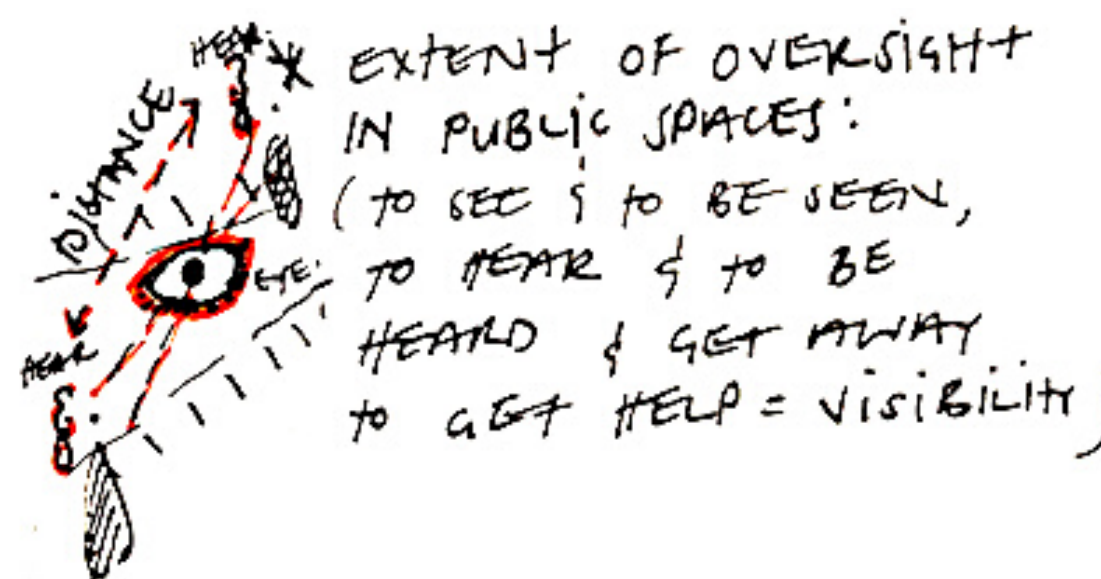 HEAR.
DISTANCE
EYE.
HEAR
* EXTENT OF OVERSIGHT
IN PUBLIC SPACES:
(TO SEE & TO BE SEEN,
TO HEAR & TO BE
HEARD & GET AWAY
TO GET HELP = VISIBILITY)